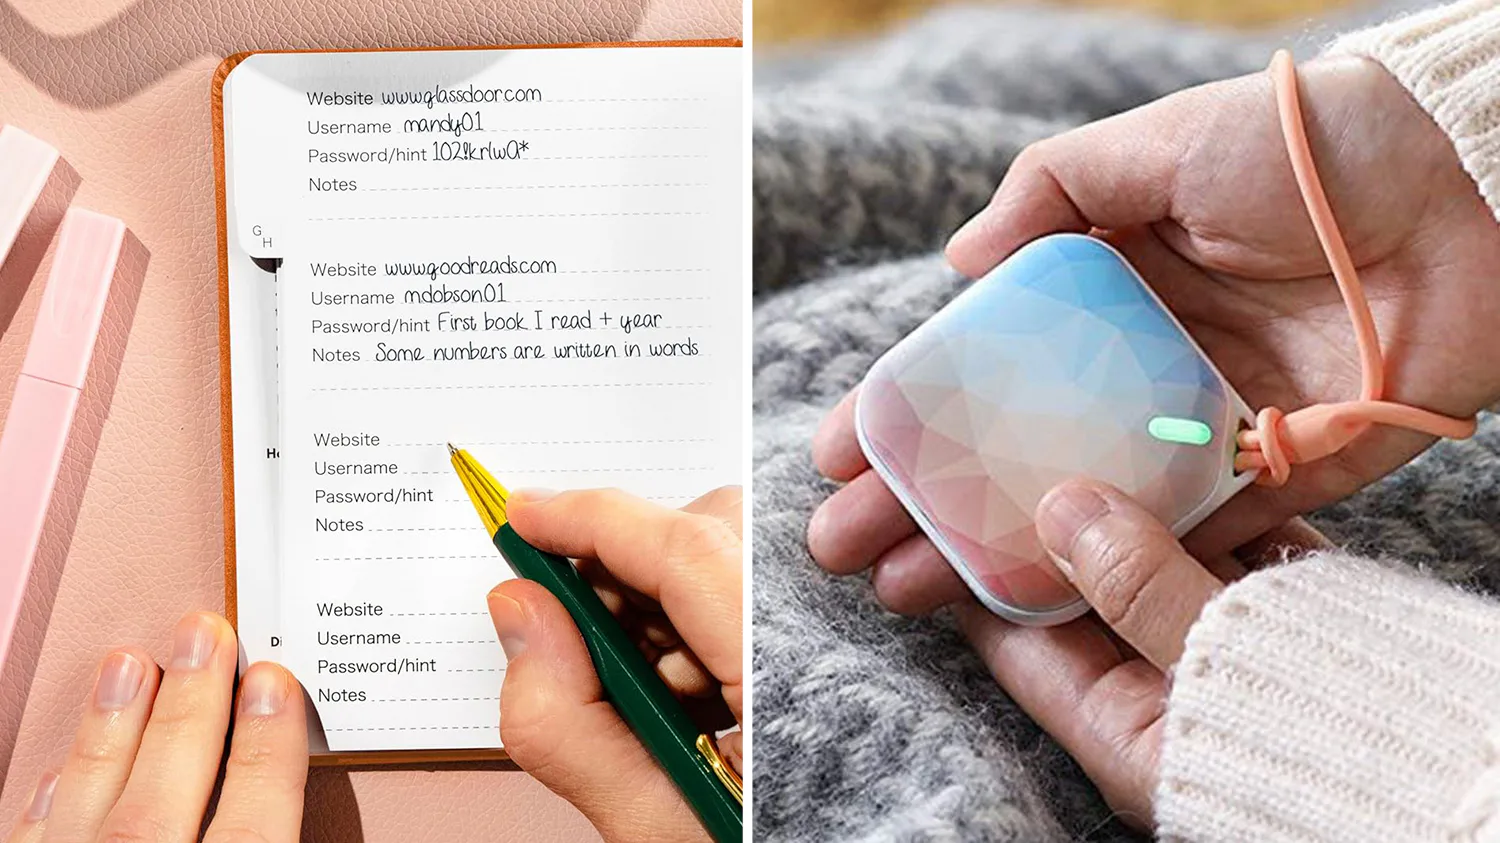 Website www.glassdoor.com
Username mandy01
Password/hint
Notes
G
H
Website www.goodreads.com
Username mdobson01
Password/hint First book I read + year
Notes Some numbers are written in words
Website
Username
Password/hint
Notes
Website
Username
Password/hint
Notes